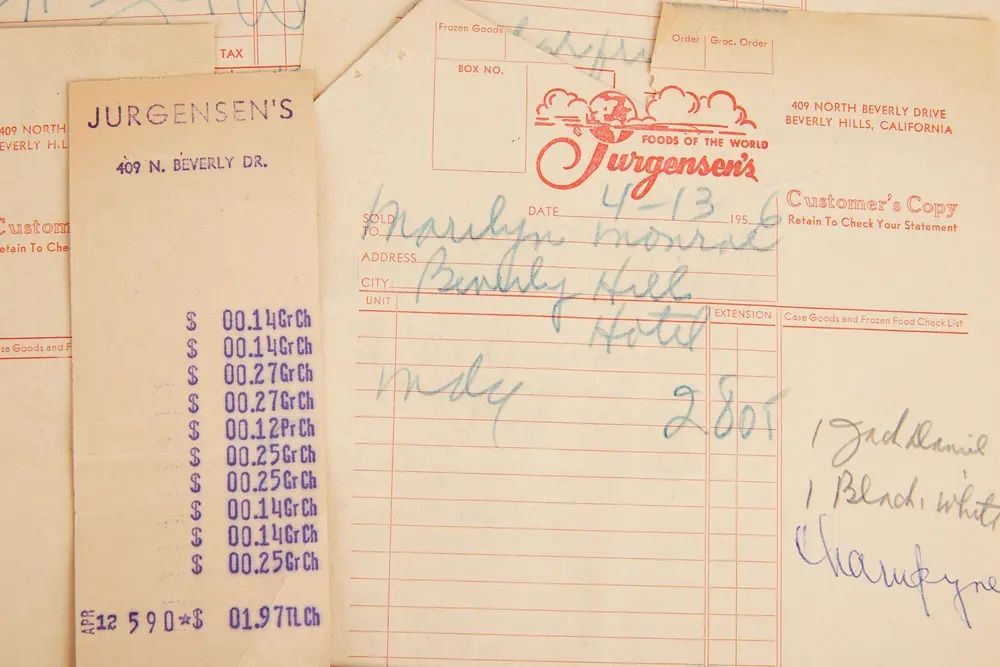 TAX
409 NORTH
EVERLY HIL
Custom
etain To Che
se Goods and F
JURGENSEN'S
409 N. BEVERLY DR.
$ 00.14GrCh
$ 00.14GrCh
$ 00.27GrCh
$ 00.27GrCh
$ 00.12PrCh
$ 00.25GrCh
$ 00.25GrCh
$ 00.14GrCh
$ 00.14GrCh
$ 00.25GrCh
APR 12 590*$ 01.97TLCh
Frozen Goods
Order Groc. Order
BOX NO.
FOODS OF THE WORLD
Jurgensen's
409 NORTH BEVERLY DRIVE
BEVERLY HILLS, CALIFORNIA
Customer's Copy
Retain To Check Your Statement
DATE 4-13 195 6
SOLD TO Marilyn Monroe
ADDRESS Beverly Hill
CITY Hotel
UNIT EXTENSION Case Goods and Frozen Food Check List
mdy 2805
1 Jack Daniel
1 Black, White
Champyne